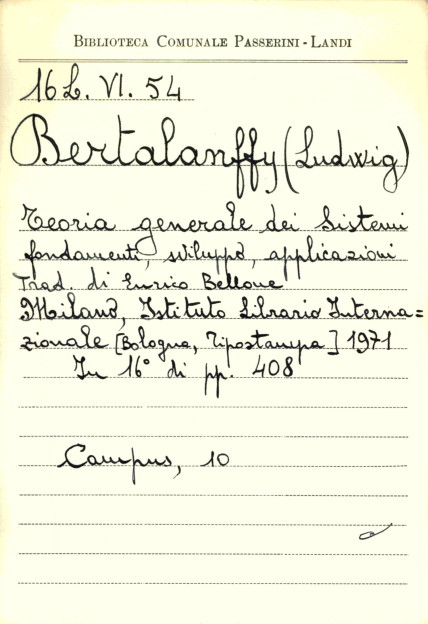 BIBLIOTECA COMUNALE PASSERINI-LANDI
16 L. VI. 54
Bertalanffy (Ludwig)
Teoria generale dei Sistemi
fondamenti, sviluppo, applicazioni
Trad. di Enrico Bellone
Milano, Istituto Librario Interna=
zionale [Bologna, Tipostampa] 1971
In 16° di pp. 408
Campus, 10